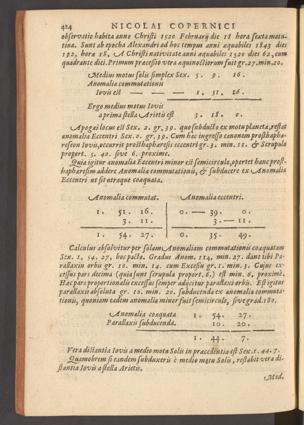 424 NICOLAI COPERNICI
observatio habita anno Christi 1520 Februarij die 18 hora sexta matu-
tina. Sunt ab epocha Alexandri ad hoc tempus anni æquabiles 1843 dies
192. hora 18. A Christi nativitate anni æquabiles 1520 dies 62, cum
quadrante diei. Primum præcessio vera æquinoctiorum fuit gr. 27. min. 20.
Medius motus solis simplex Sex. 5. 9. 16.
Anomalia commutationis
Iovis est 1. 51. 16.
Ergo medius motus Iovis
a prima stella Arietis est 3. 18. 0.
Apogæi locus est Sex. 2. gr. 39. quo subducto ex motu planetæ, restat
anomalia Eccentri Sex. 0. gr. 39. Cum hac ingresso canonem prosthaphæ-
reseon Iovis, occurrit prosthaphæresis eccentri gr. 3. min. 11. & Scrupula
proport. 5. 40. sive 6. proxime.
Quia igitur anomalia Eccentri minor est semicirculo, oportet hanc prost-
haphæresim addere Anomaliæ commutationis, & subducere ex Anomalia
Eccentri ut sit utraque coæquata.
Anomalia commutat. Anomalia eccentri.
1. 51. 16. 0. 39. 0.
3. 11. 3. 11.
1. 54. 27. 0. 35. 49.
Calculus absolvitur per solam Anomaliam commutationis coæquatam
Sex. 1, 54, 27, hoc pacto. Gradus Anom. 114, min. 27. dant tibi Pa-
rallaxin orbis gr. 10. min. 14. cum Excessu gr. 1. min. 3. Cujus ex-
cessus pars decima (quia sunt scrupula proport. 6.) est min. 6, proxime.
Hæc pars proportionalis excessus semper adijcitur parallaxi orbis. Est igitur
parallaxis absoluta gr. 10. min. 20. subducenda ex anomalia commuta-
tionis, quoniam eadem anomalia minor fuit semicirculo, sive grad. 180.
Anomalia coæquata 1. 54. 27.
Parallaxis subducenda. 10. 20.
1. 44. 7.
Vera distantia Iovis a medio motu Solis in præcedentia est Sex. 1. 44. 7.
Quamobrem si eandem subduxeris è medio motu Solis, restabit vera di-
stantia Iovis a stella Arietis.
Med.